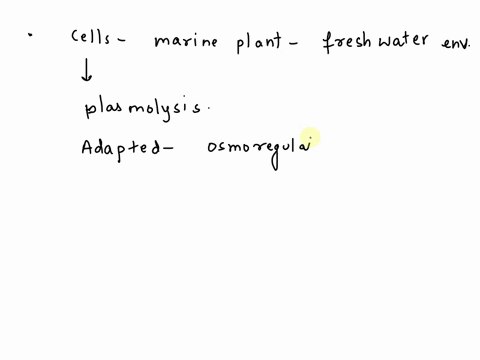 • Cells - marine plant - freshwater env.
↓
plasmolysis.
Adapted - osmoregulai